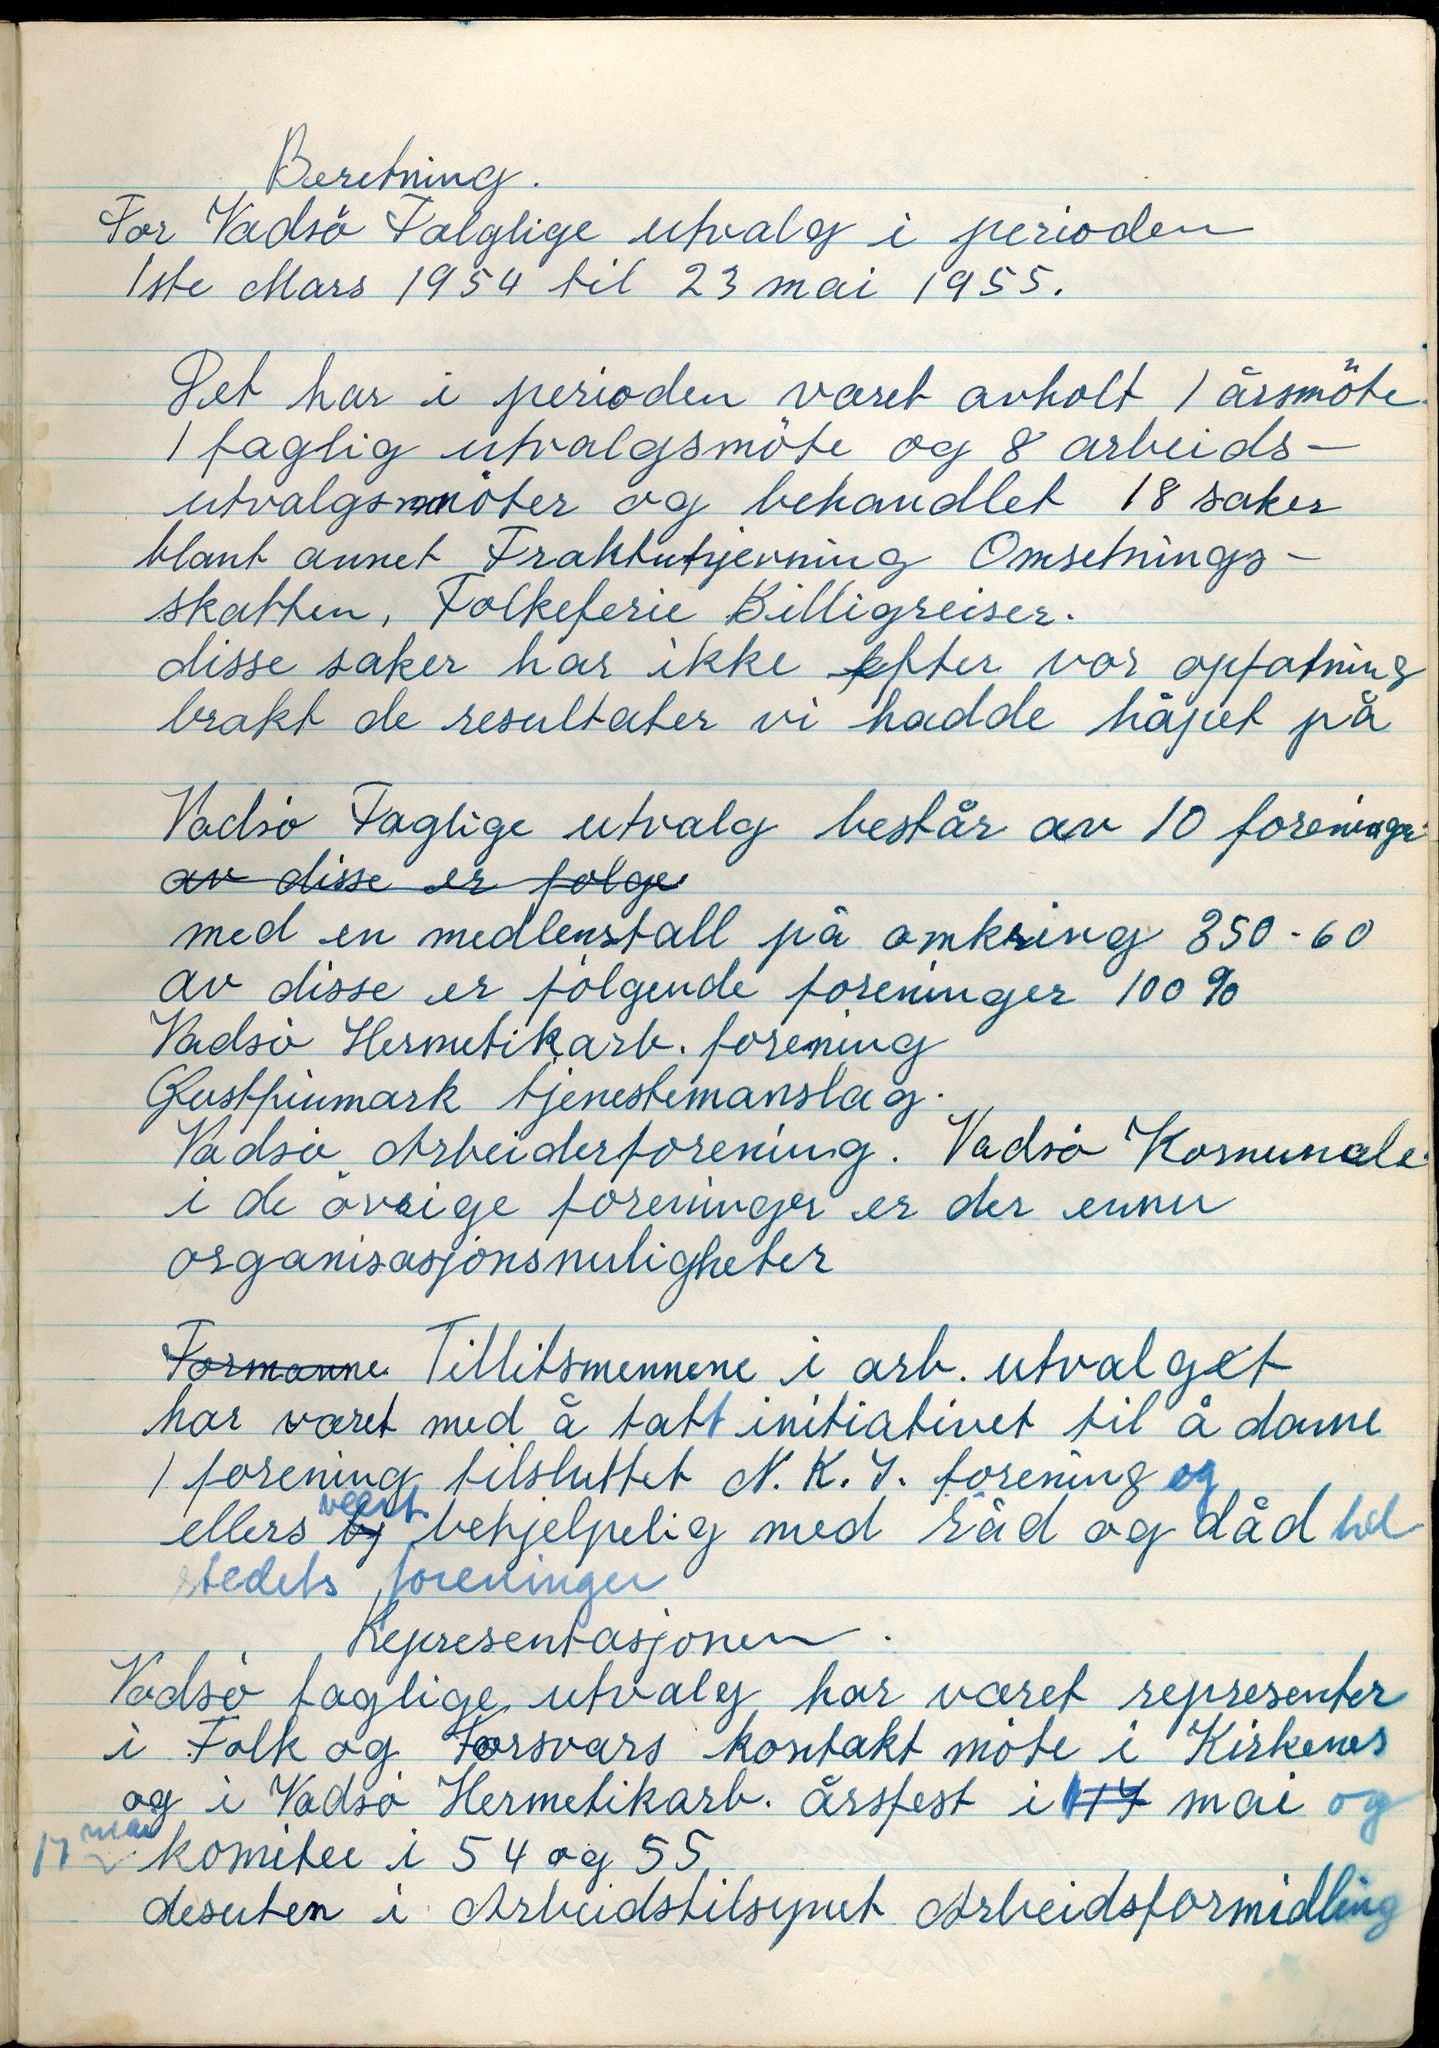 Beretning.
For Vadsö Falglige utvalg i perioden
1ste Mars 1954 til 23 mai 1955.
Det har i perioden været avholt 1 årsmöte
1 faglig utvalgsmöte og 8 arbeids-
utvalgsmöter og behandlet 18 saker
blant annet Fraktutjevning Omsetnings-
skatten, Folkeferie Billigreiser.
disse saker har ikke efter vor oppfatning
brakt de resultater vi hadde håpet på
Vadsö Faglige utvalg består av 10 foreninger
av disse er følge
med en medlemstall på omkring 350-60
av disse er fölgende foreninger 100%
Vadsö Hermetikarb. forening
Östfinmark tjenestemanslag.
Vadsö Arbeiderforening. Vadsö Komunale
i de övrige foreninger er der ennu
organisasjonsmuligheter
Formanne Tillitsmennene i arb. utvalget
har været med å tatt initiativet til å danne
1 forening tilsluttet N.K.I. forening og
ellers vært behjelpelig med råd og dåd til
stedets foreninger
Representasjonen.
Vadsö faglige utvalg har været representer
i Folk og Forsvars kontakt möte i Kirkenes
og i Vadsö Hermetikarb. årsfest i 17 mai og
17 mai komitee i 54 og 55
desuten i Arbeidstilsynet Arbeidsformidling